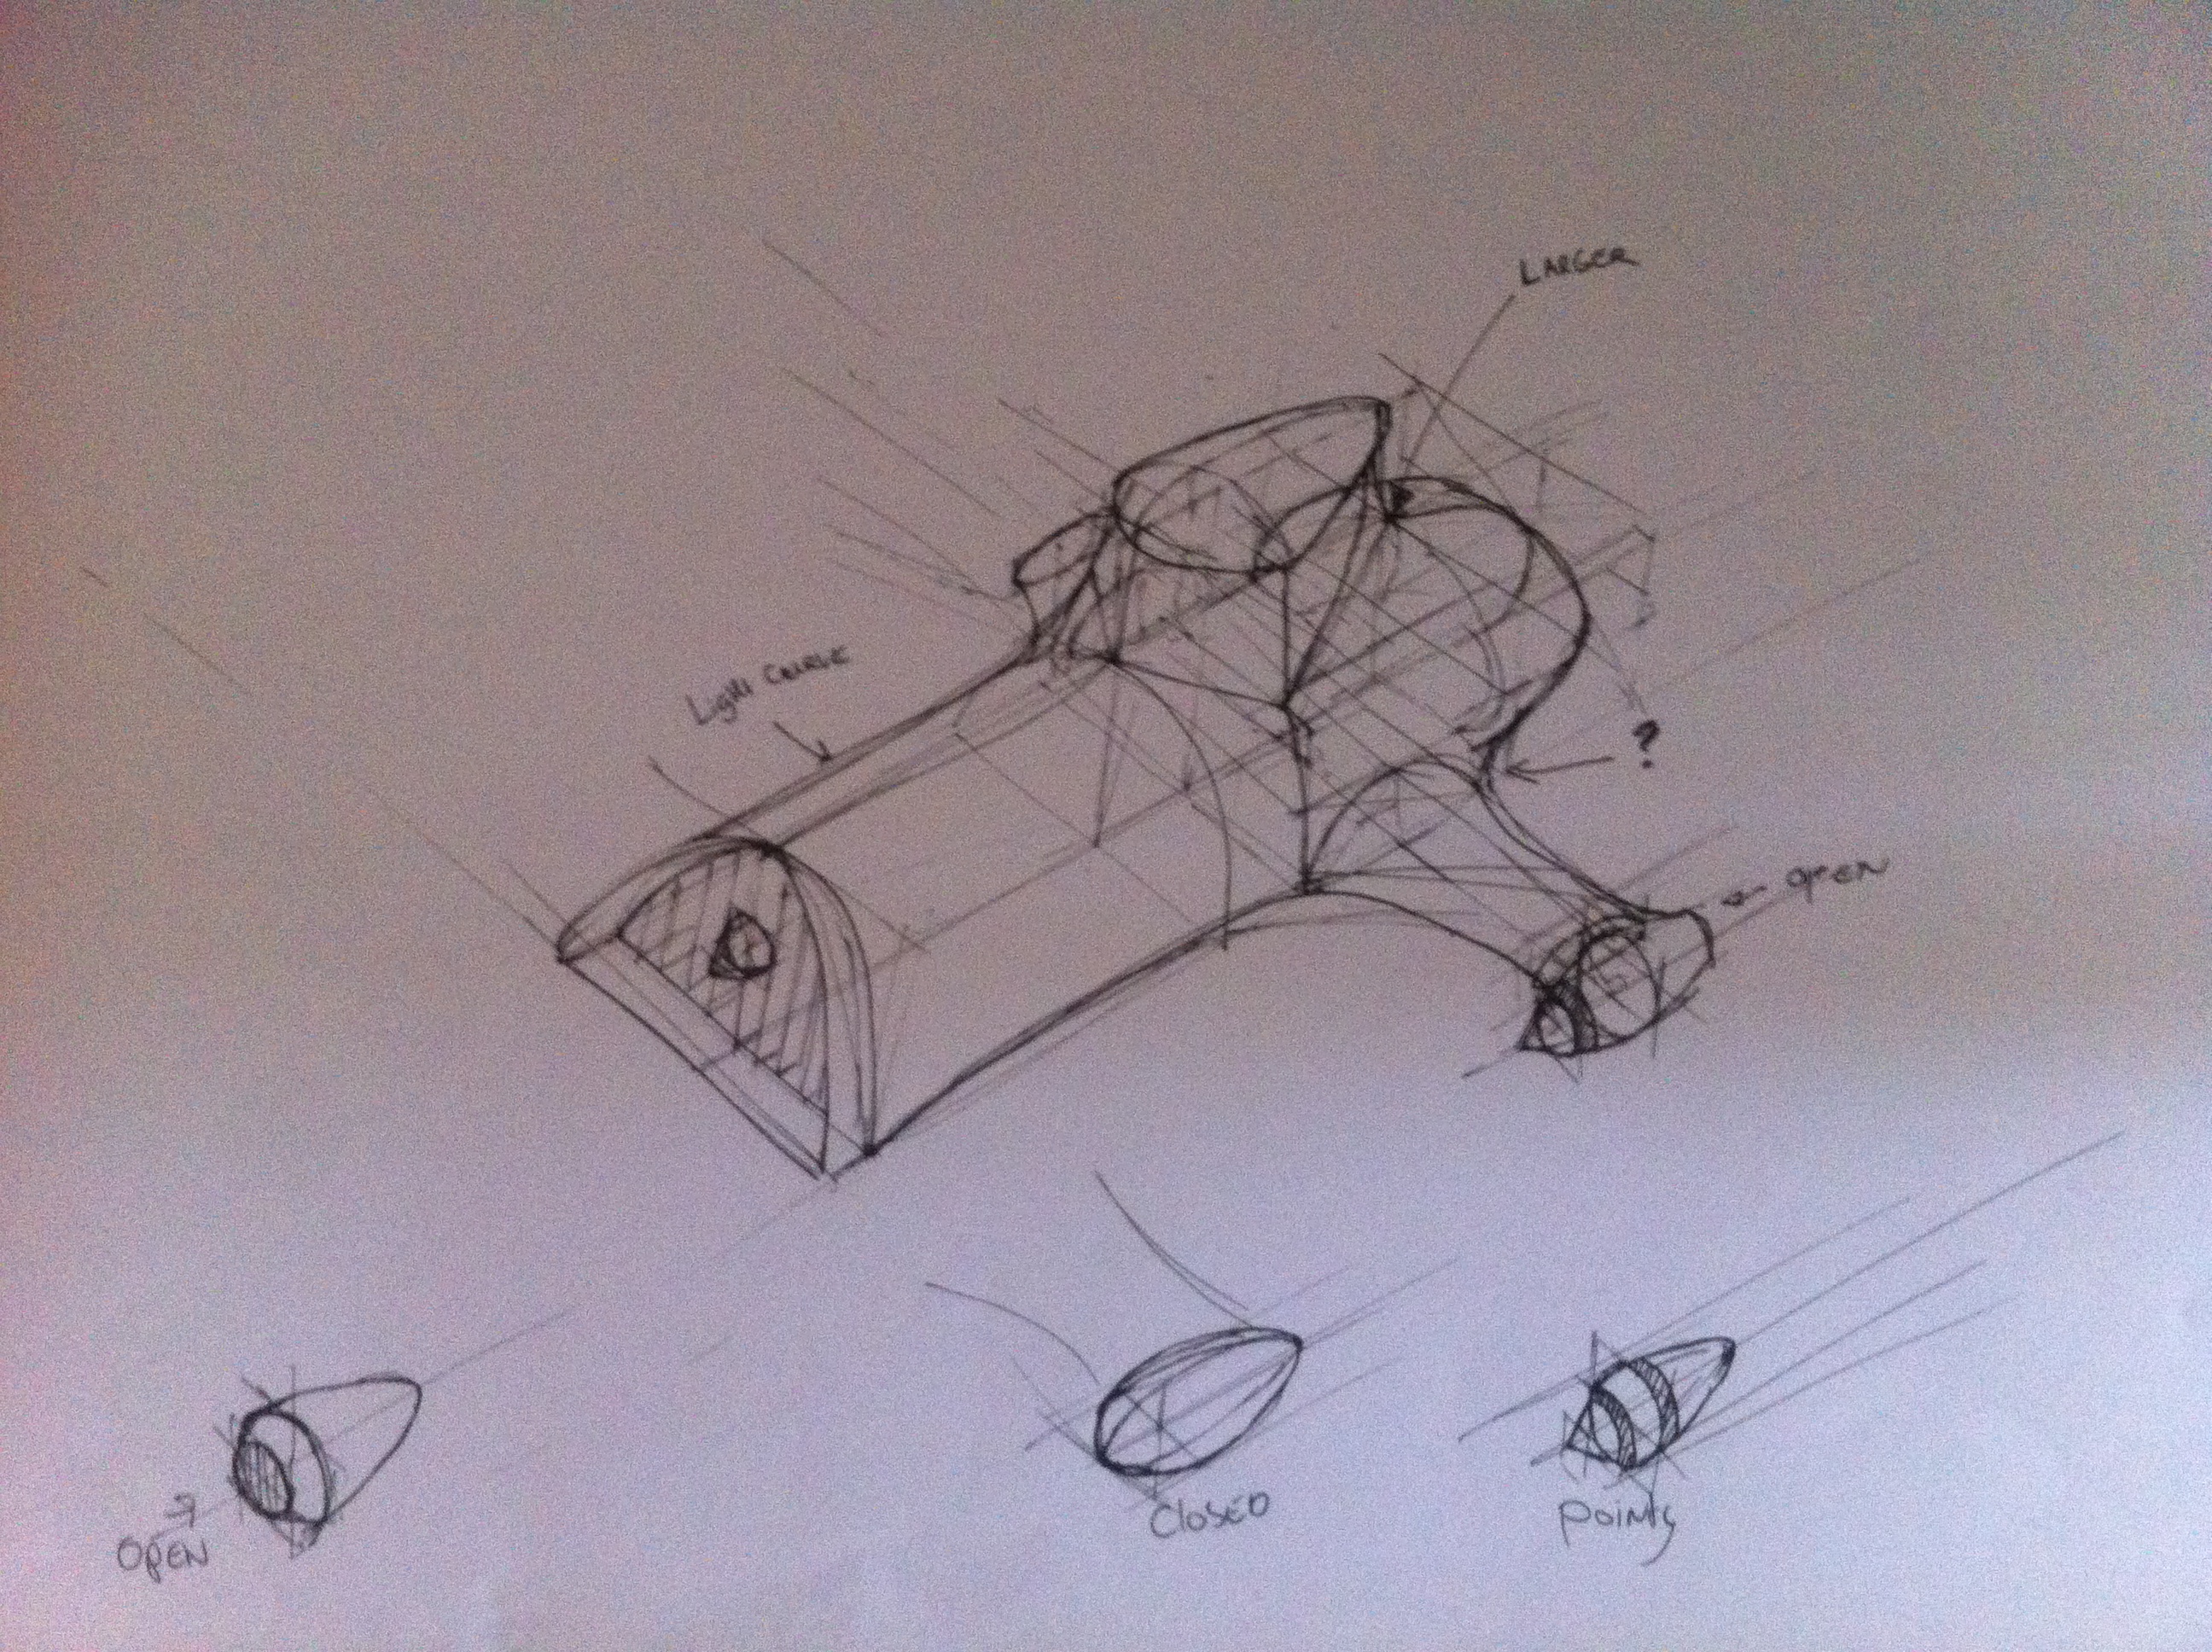 LARGER
Light CURVE
?
OPEN
OPEN
ClosED
Points